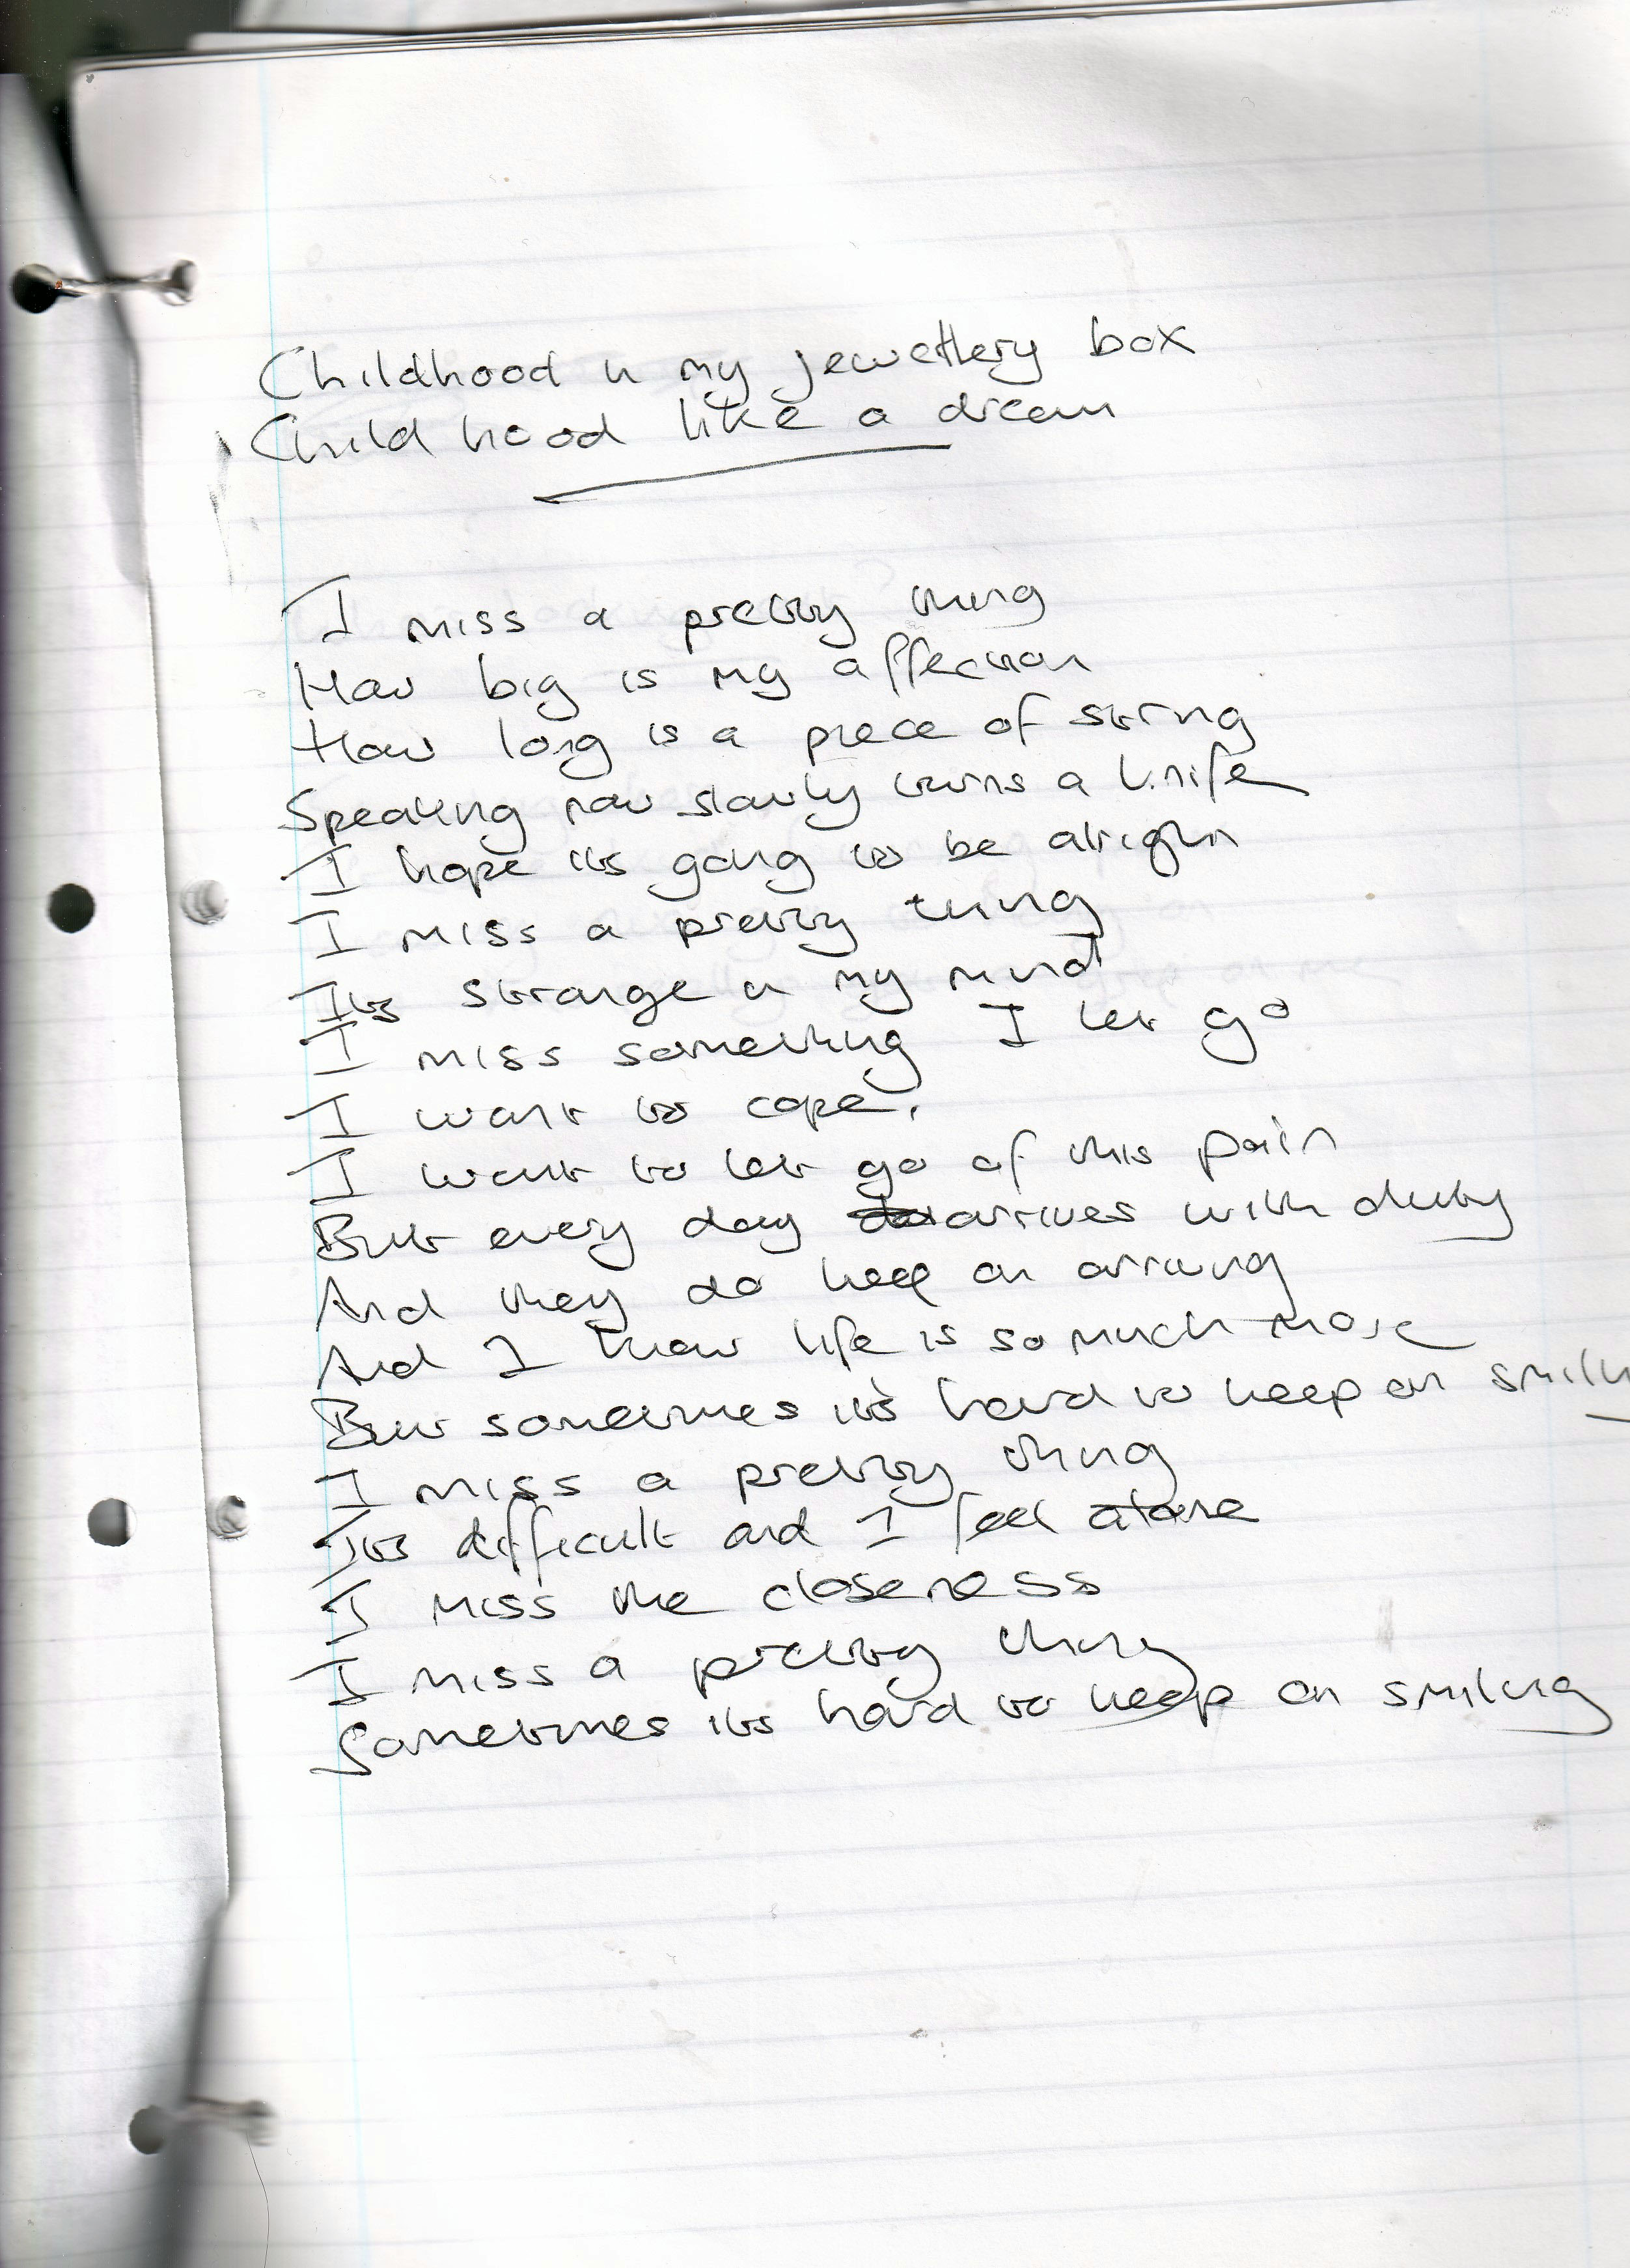 Childhood in my jewellery box
Childhood like a dream
I miss a pretty thing
How big is my affection
How long is a piece of string
Speaking now slowly turns a knife
I hope its going to be alright
I miss a pretty thing
Its strange in my mind
I miss something I let go
I want to cope.
I want to let go of this pain
But every day arrives with duty
And they do keep on arriving
And I know life is so much more
But sometimes it's hard to keep on smilin
I miss a pretty thing
Its difficult and I feel alone
I miss the closeness
I miss a pretty thing
Sometimes its hard to keep on smiling